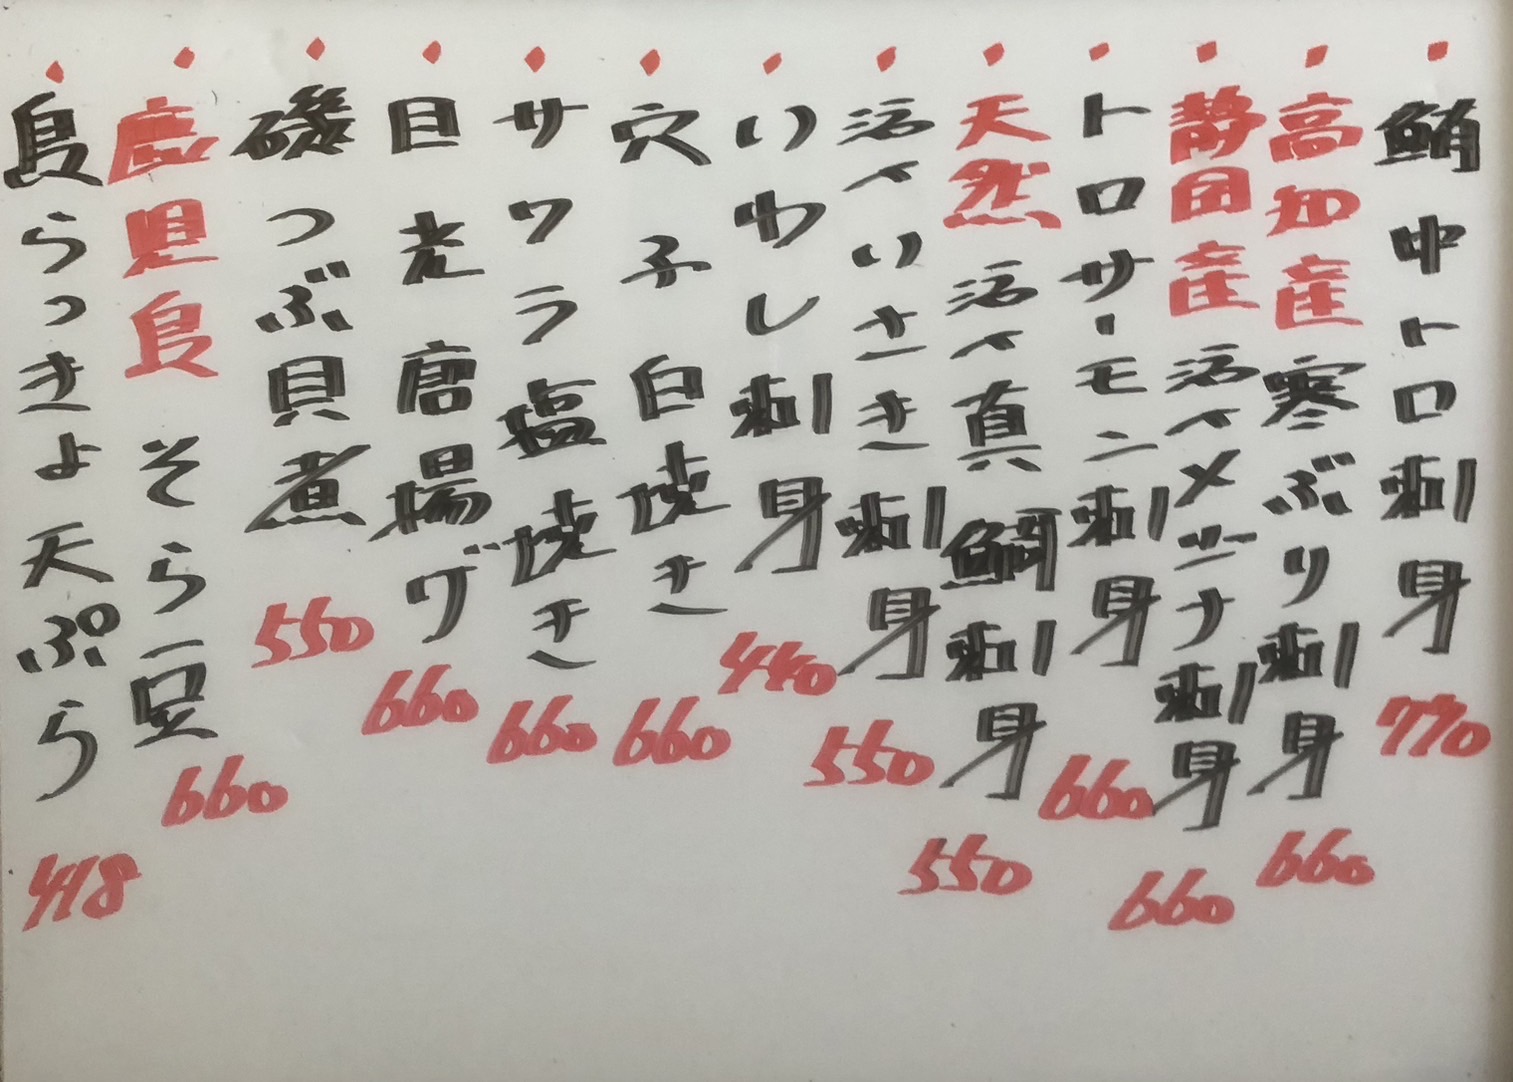 ・鮪中トロ刺身 770
・高知産寒ぶり刺身 660
・静岡産活〆メジナ刺身 660
・トロサーモン刺身 660
・天然活〆真鯛刺身 550
・活〆いさき刺身 550
・いわし刺身 440
・穴子白焼き 660
・サワラ塩焼き 660
・目光唐揚げ 660
・磯つぶ貝煮 550
・鹿児島そら豆 660
・島らっきょ天ぷら 418